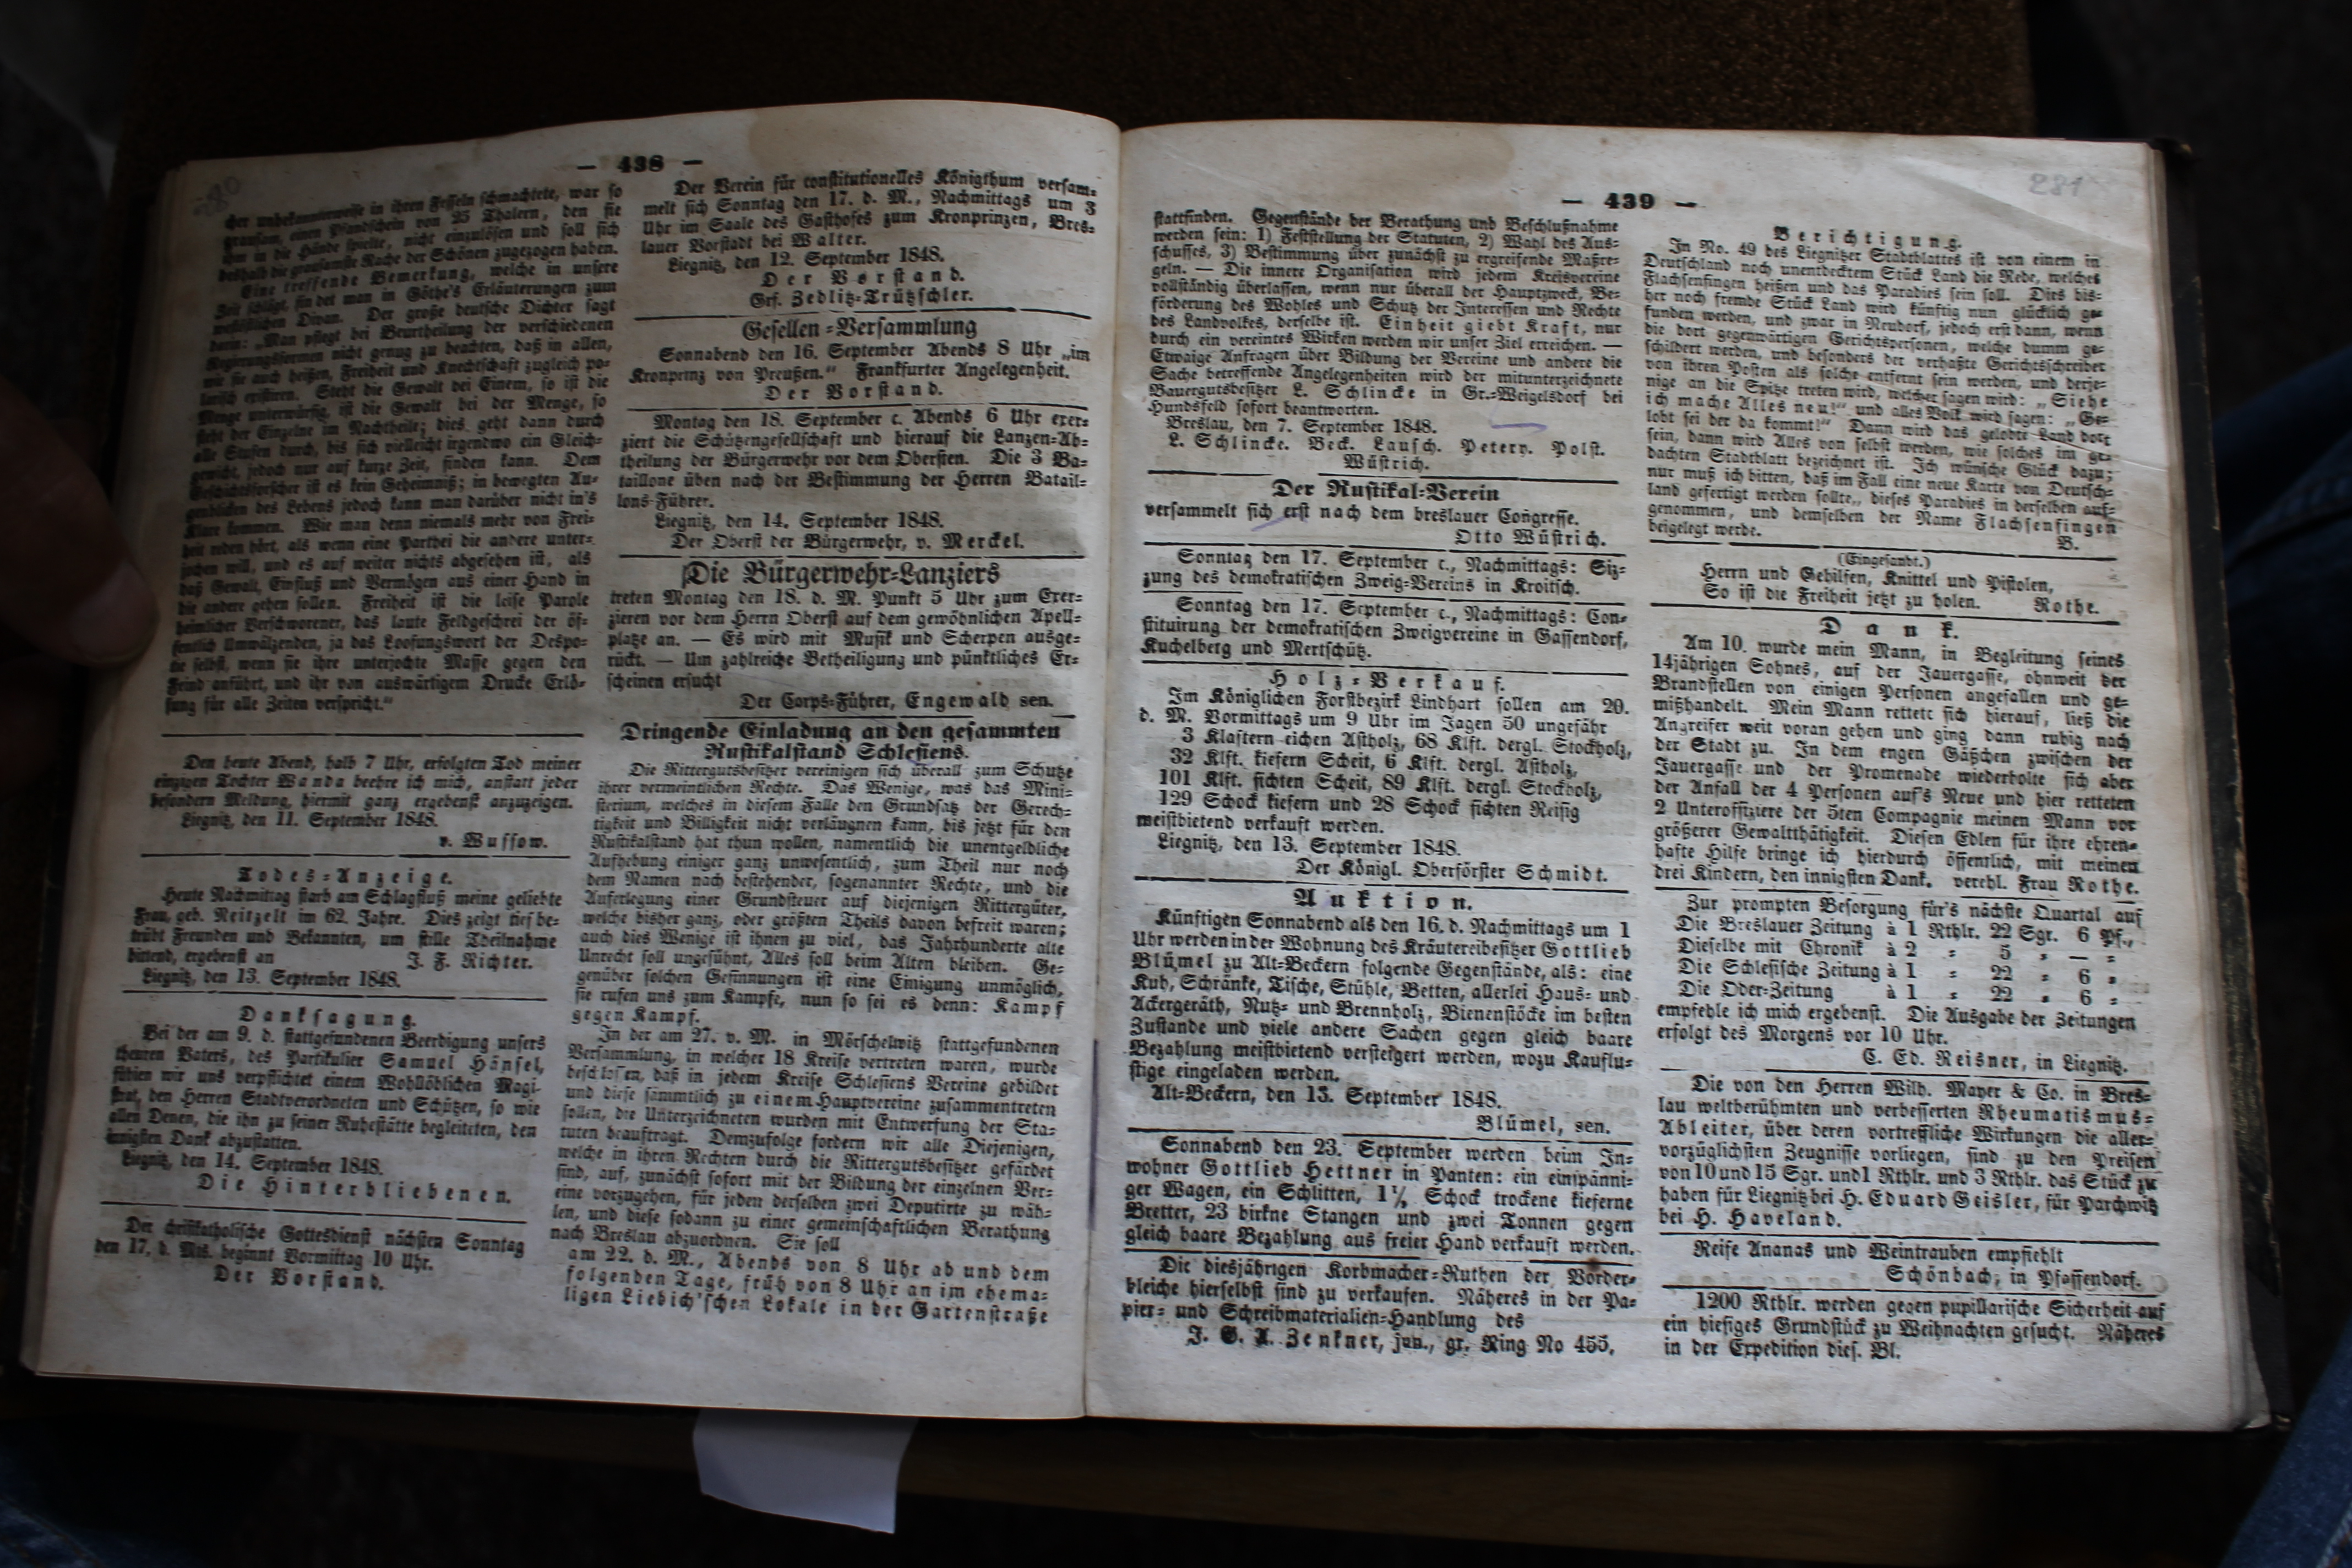 — 438 —
cher unbekannterweise in ihren Fesseln schmachtete, war so
grausam, einen Pfandschein von 25 Thalern, den sie
ihm in die Hände spielte, nicht einzulösen und soll sich
deshalb die grausamste Rache der Schönen zugezogen haben.
Eine treffende Bemerkung, welche in unsere
Zeit schlägt, findet man in Göthe's Erläuterungen zum
westöstlichen Divan. Der große deutsche Dichter sagt
darin: „Man pflegt bei Beurtheilung der verschiedenen
Regierungsformen nicht genug zu beachten, daß in allen,
wie sie auch heißen, Freiheit und Knechtschaft zugleich po-
larisch existiren. Steht die Gewalt bei Einem, so ist die
Menge unterwürfig, ist die Gewalt bei der Menge, so
steht der Einzelne im Nachtheile; dies geht dann durch
alle Stufen durch, bis sich vielleicht irgendwo ein Gleich-
gewicht, jedoch nur auf kurze Zeit, finden kann. Dem
Geschichtsforscher ist es kein Geheimniß; in bewegten Au-
genblicken des Lebens jedoch kann man darüber nicht in's
Klare kommen. Wie man denn niemals mehr von Frei-
heit reden hört, als wenn eine Parthei die andere unter-
jochen will, und es auf weiter nichts abgesehen ist, als
daß Gewalt, Einfluß und Vermögen aus einer Hand in
die andere gehen sollen. Freiheit ist die leise Parole
heimlicher Verschworener, das laute Feldgeschrei der öf-
fentlich Umwälzenden, ja das Loosungswort der Despo-
tie selbst, wenn sie ihre unterjochte Masse gegen den
Feind anführt, und ihr von auswärtigem Drucke Erlö-
sung für alle Zeiten verspricht.“
Den heute Abend, halb 7 Uhr, erfolgten Tod meiner
einzigen Tochter Wanda beehre ich mich, anstatt jeder
besondern Meldung, hiermit ganz ergebenst anzuzeigen.
Liegnitz, den 11. September 1848.
v. Wussow.
Todes-Anzeige.
Heute Nachmittag starb am Schlagfluß meine geliebte
Frau, geb. Neitzelt im 62. Jahre. Dies zeigt tief be-
trübt Freunden und Bekannten, um stille Theilnahme
bittend, ergebenst an J. F. Richter.
Liegnitz, den 13. September 1848.
Danksagung.
Bei der am 9. d. stattgefundenen Beerdigung unsers
theuren Vaters, des Partikulier Samuel Hänsel,
fühlen wir uns verpflichtet einem Wohllöblichen Magi-
strat, den Herren Stadtverordneten und Schützen, so wie
allen Denen, die ihn zu seiner Ruhestätte begleiteten, den
innigsten Dank abzustatten.
Liegnitz, den 14. September 1848.
Die Hinterbliebenen.
Der christkatholische Gottesdienst nächsten Sonntag
den 17. d. Mts. beginnt Vormittag 10 Uhr.
Der Vorstand.
Der Verein für constitutionelles Königthum versam-
melt sich Sonntag den 17. d. M., Nachmittags um 3
Uhr im Saale des Gasthofes zum Kronprinzen, Bres-
lauer Vorstadt bei Walter.
Liegnitz, den 12. September 1848.
Der Vorstand.
Grf. Zedlitz-Trützschler.
Gesellen-Versammlung
Sonnabend den 16. September Abends 8 Uhr „im
Kronprinz von Preußen.“ Frankfurter Angelegenheit.
Der Vorstand.
Montag den 18. September c. Abends 6 Uhr exer-
ziert die Schützengesellschaft und hierauf die Lanzen-Ab-
theilung der Bürgerwehr vor dem Obersten. Die 3 Ba-
taillone üben nach der Bestimmung der Herren Batail-
lons-Führer.
Liegnitz, den 14. September 1848.
Der Oberst der Bürgerwehr, v. Merckel.
Die Bürgerwehr-Lanziers
treten Montag den 18. d. M. Punkt 5 Uhr zum Exer-
zieren vor dem Herrn Oberst auf dem gewöhnlichen Apell-
platze an. — Es wird mit Musik und Scherpen ausge-
rückt. — Um zahlreiche Betheiligung und pünktliches Er-
scheinen ersucht
Der Corps-Führer, Engewald sen.
Dringende Einladung an den gesammten
Rustikalstand Schlesiens.
Die Rittergutsbesitzer vereinigen sich überall zum Schutze
ihrer vermeintlichen Rechte. Das Wenige, was das Mini-
sterium, welches in diesem Falle den Grundsatz der Gerech-
tigkeit und Billigkeit nicht verläugnen kann, bis jetzt für den
Rustikalstand hat thun wollen, namentlich die unentgeldliche
Aufhebung einiger ganz unwesentlich, zum Theil nur noch
dem Namen nach bestehender, sogenannter Rechte, und die
Auferlegung einer Grundsteuer auf diejenigen Rittergüter,
welche bisher ganz, oder größten Theils davon befreit waren;
auch dies Wenige ist ihnen zu viel, das Jahrhunderte alte
Unrecht soll ungesühnt, Alles soll beim Alten bleiben. Ge-
genüber solchen Gesinnungen ist eine Einigung unmöglich,
sie rufen uns zum Kampfe, nun so sei es denn: Kampf
gegen Kampf.
In der am 27. v. M. in Mörschelwitz stattgefundenen
Versammlung, in welcher 18 Kreise vertreten waren, wurde
beschlossen, daß in jedem Kreise Schlesiens Vereine gebildet
und diese sämmtlich zu einem Hauptvereine zusammentreten
sollen, die Unterzeichneten wurden mit Entwerfung der Sta-
tuten beauftragt. Demzufolge fordern wir alle Diejenigen,
welche in ihren Rechten durch die Rittergutsbesitzer gefärdet
sind, auf, zunächst sofort mit der Bildung der einzelnen Ver-
eine vorzugehen, für jeden derselben zwei Deputirte zu wäh-
len, und diese sodann zu einer gemeinschaftlichen Berathung
nach Breslau abzuordnen. Sie soll
am 22. d. M., Abends von 8 Uhr ab und dem
folgenden Tage, früh von 8 Uhr an im ehema-
ligen Liebich'schen Lokale in der Gartenstraße
281
— 439 —
stattfinden. Gegenstände der Berathung und Beschlußnahme
werden sein: 1) Feststellung der Statuten, 2) Wahl des Aus-
schusses, 3) Bestimmung über zunächst zu ergreifende Maßre-
geln. — Die innere Organisation wird jedem Kreisvereine
vollständig überlassen, wenn nur überall der Hauptzweck, Be-
förderung des Wohles und Schutz der Interessen und Rechte
des Landvolkes, derselbe ist. Einheit giebt Kraft, nur
durch ein vereintes Wirken werden wir unser Ziel erreichen. —
Etwaige Anfragen über Bildung der Vereine und andere die
Sache betreffende Angelegenheiten wird der mitunterzeichnete
Bauergutsbesitzer L. Schlincke in Gr.-Weigelsdorf bei
Hundsfeld sofort beantworten.
Breslau, den 7. September 1848.
L. Schlincke. Beck. Lausch. Petery. Polst.
Wüstrich.
Der Rustikal-Verein
versammelt sich erst nach dem breslauer Congresse.
Otto Wüstrich.
Sonntag den 17. September c., Nachmittags: Siz-
zung des demokratischen Zweig-Vereins in Kroitsch.
Sonntag den 17. September c., Nachmittags: Con-
stituirung der demokratischen Zweigvereine in Gassendorf,
Kuchelberg und Mertschütz.
Holz-Verkauf.
Im Königlichen Forstbezirk Lindhart sollen am 20.
d. M. Vormittags um 9 Uhr im Jagen 50 ungefähr
3 Klaftern eichen Astholz, 68 Klft. dergl. Stockholz,
32 Klft. kiefern Scheit, 6 Klft. dergl. Astholz,
101 Klft. fichten Scheit, 89 Klft. dergl. Stockholz,
129 Schock kiefern und 28 Schock fichten Reisig
meistbietend verkauft werden.
Liegnitz, den 13. September 1848.
Der Königl. Oberförster Schmidt.
Auktion.
Künftigen Sonnabend als den 16. d. Nachmittags um 1
Uhr werden in der Wohnung des Kräutereibesitzer Gottlieb
Blümel zu Alt-Beckern folgende Gegenstände, als: eine
Kuh, Schränke, Tische, Stühle, Betten, allerlei Haus- und
Ackergeräth, Nutz- und Brennholz, Bienenstöcke im besten
Zustande und viele andere Sachen gegen gleich baare
Bezahlung meistbietend versteigert werden, wozu Kauflu-
stige eingeladen werden.
Alt-Beckern, den 13. September 1848.
Blümel, sen.
Sonnabend den 23. September werden beim In-
wohner Gottlieb Hettner in Panten: ein einspänni-
ger Wagen, ein Schlitten, 1½ Schock trockene kieferne
Bretter, 23 birkne Stangen und zwei Tonnen gegen
gleich baare Bezahlung aus freier Hand verkauft werden.
Die diesjährigen Korbmacher-Ruthen der Vorder-
bleiche hierselbst sind zu verkaufen. Näheres in der Pa-
pier- und Schreibmaterialien-Handlung des
J. G. A. Zenkner, jun., gr. Ring No 455.
Berichtigung.
In No. 49 des Liegnitzer Stadtblattes ist von einem in
Deutschland noch unentdecktem Stück Land die Rede, welches
Flachsenfingen heißen und das Paradies sein soll. Dies bis-
her noch fremde Stück Land wird künftig nun glücklich ge-
funden werden, und zwar in Neudorf, jedoch erst dann, wenn
die dort gegenwärtigen Gerichtspersonen, welche dumm ge-
schildert werden, und besonders der verhaßte Gerichtsschreiber
von ihren Posten als solche entfernt sein werden, und derje-
nige an die Spitze treten wird, welcher sagen wird: „Siehe
ich mache Alles neu!“ und alles Volk wird sagen: „Ge-
lobt sei der da kommt!“ Dann wird das gelobte Land dort
sein, dann wird Alles von selbst werden, wie solches im ge-
dachten Stadtblatt bezeichnet ist. Ich wünsche Glück dazu;
nur muß ich bitten, daß im Fall eine neue Karte von Deutsch-
land gefertigt werden sollte, dieses Paradies in derselben auf-
genommen, und demselben der Name Flachsenfingen
beigelegt werde. B.
(Eingesandt.)
Herrn und Gehilfen, Knittel und Pistolen,
So ist die Freiheit jetzt zu holen. Rothe.
Dank.
Am 10. wurde mein Mann, in Begleitung seines
14jährigen Sohnes, auf der Jauergasse, ohnweit der
Brandstellen von einigen Personen angefallen und ge-
mißhandelt. Mein Mann rettete sich hierauf, ließ die
Angreifer weit voran gehen und ging dann ruhig nach
der Stadt zu. In dem engen Gäßchen zwischen der
Jauergasse und der Promenade wiederholte sich aber
der Anfall der 4 Personen auf's Neue und hier retteten
2 Unteroffiziere der 5ten Compagnie meinen Mann vor
größerer Gewaltthätigkeit. Diesen Edlen für ihre ehren-
hafte Hilfe bringe ich hierdurch öffentlich, mit meinen
drei Kindern, den innigsten Dank. verehl. Frau Rothe.
Zur prompten Besorgung für's nächste Quartal auf
Die Breslauer Zeitung à 1 Rthlr. 22 Sgr. 6 Pf.,
Dieselbe mit Chronik à 2 „ 5 „ — „
Die Schlesische Zeitung à 1 „ 22 „ 6 „
Die Oder-Zeitung à 1 „ 22 „ 6 „
empfehle ich mich ergebenst. Die Ausgabe der Zeitungen
erfolgt des Morgens vor 10 Uhr.
C. Ed. Reisner, in Liegnitz.
Die von den Herren Wilh. Mayer & Co. in Bres-
lau weltberühmten und verbesserten Rheumatismus-
Ableiter, über deren vortreffliche Wirkungen die aller-
vorzüglichsten Zeugnisse vorliegen, sind zu den Preisen
von 10 und 15 Sgr. und 1 Rthlr. und 3 Rthlr. das Stück zu
haben für Liegnitz bei H. Eduard Geisler, für Parchwitz
bei H. Haveland.
Reife Ananas und Weintrauben empfiehlt
Schönbach, in Pfaffendorf.
1200 Rthlr. werden gegen pupillarische Sicherheit auf
ein hiesiges Grundstück zu Weihnachten gesucht. Näheres
in der Expedition dies. Bl.